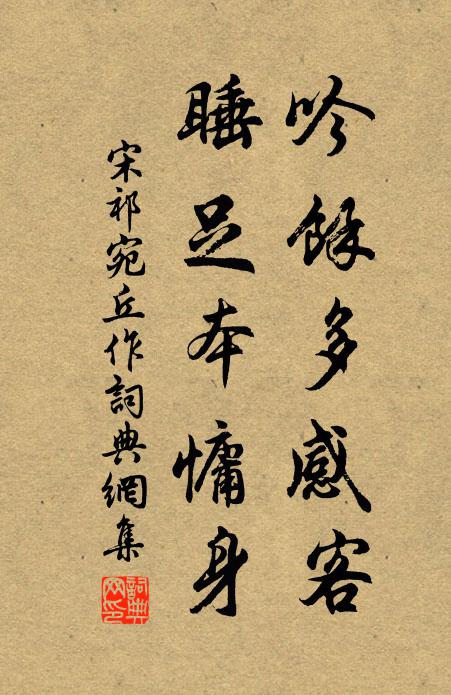 吟餘多感客
睡足本慵身
宋祁宛丘作詞典網集
詞典網印